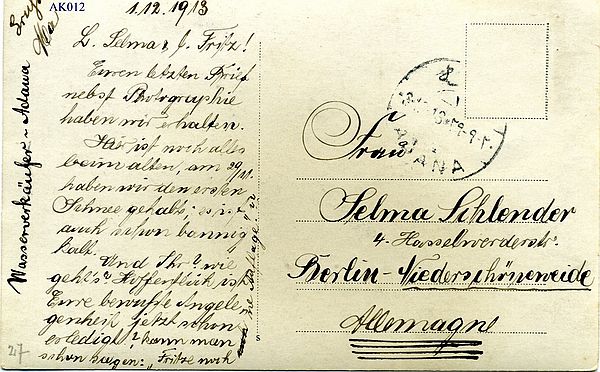 AK012
1.12.1913
L. Selma & J. Fritz!
Euren letzten Brief
nebst Photographie
haben wir erhalten.
Hier ist noch alles
beim alten, am 29/11.
haben wir den ersten
Schnee gehabt; es ist
auch schon bannig
kalt.
Und Ihr? wie
geht's? Hoffentlich ist
Eure bewußte Angele-
genheit jetzt schon
erledigt? kann man
schon sagen: „Fritze noch
Wasserverkäufer - Adana
Frau
Selma Schlender
4. Hasselwerderstr.
Berlin-Niederschöneweide
Allemagne
ANA
S
217